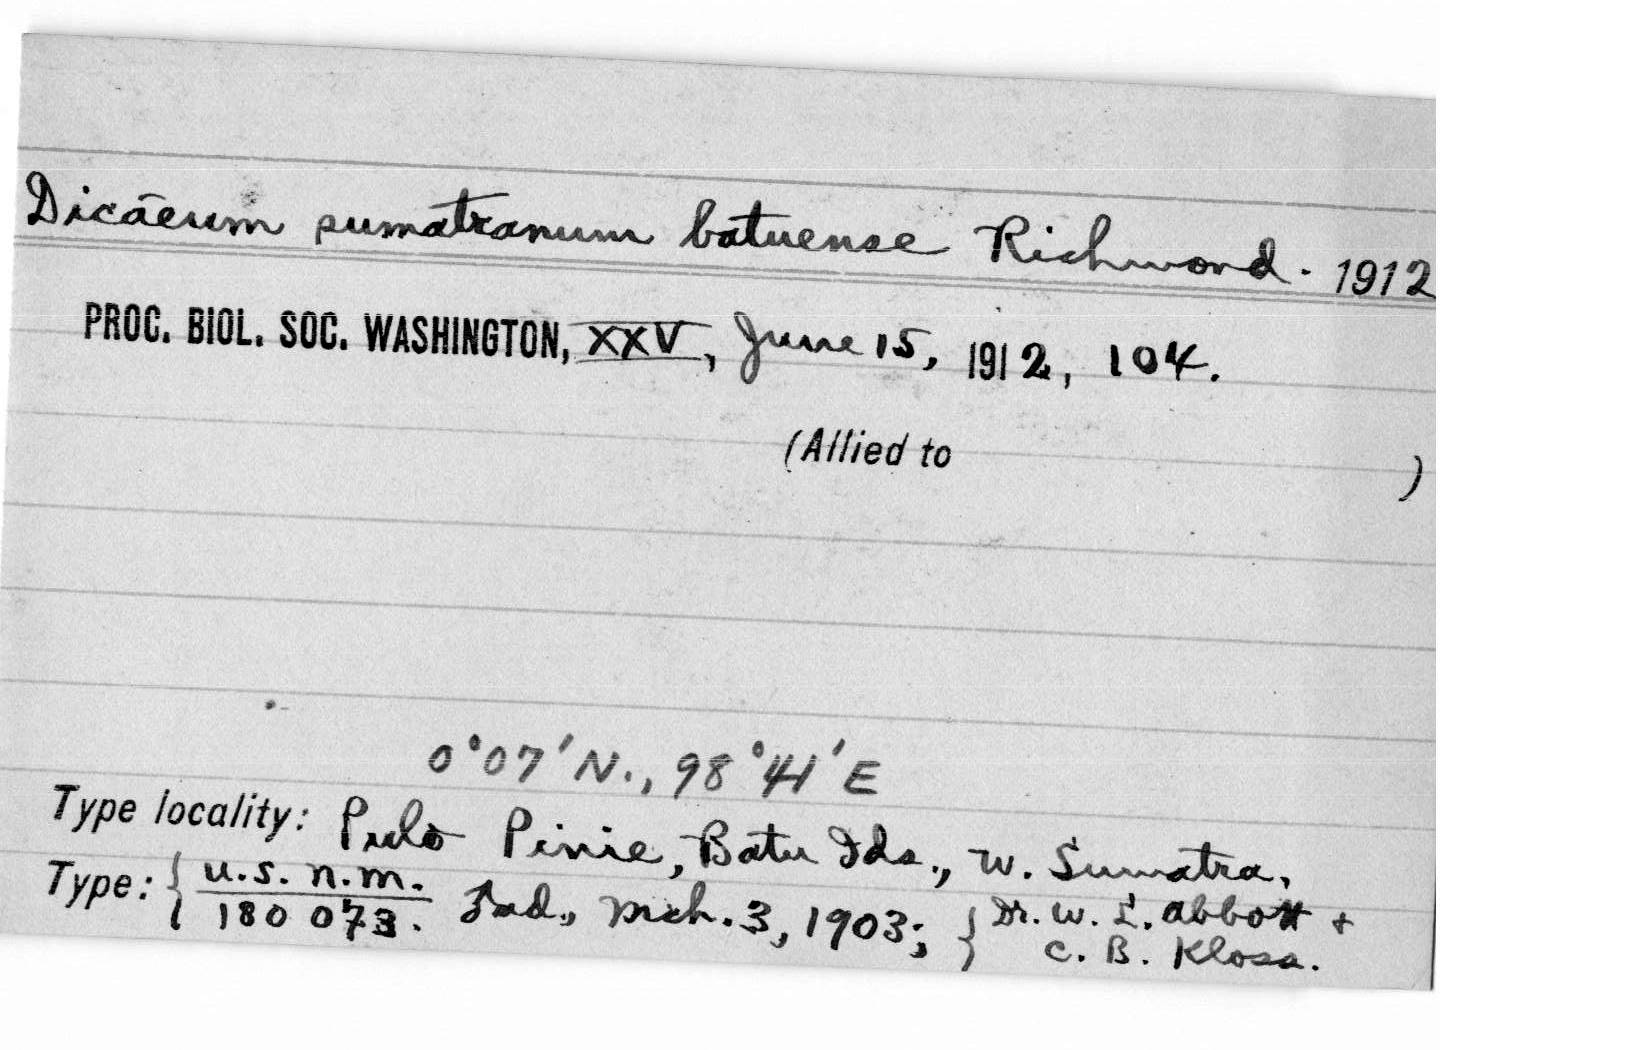 Dicaeum sumatranum batuense Richmond. 1912
PROC. BIOL. SOC. WASHINGTON, XXV, June 15, 1912, 104.
(Allied to )
0°07'N., 98°41'E
Type locality: Pulo Pinie, Batu Ids., W. Sumatra.
Type: { U.S.N.M. 180 073. ♂ad., Mch. 3, 1903; } Dr. W. L. Abbott &
C. B. Kloss.